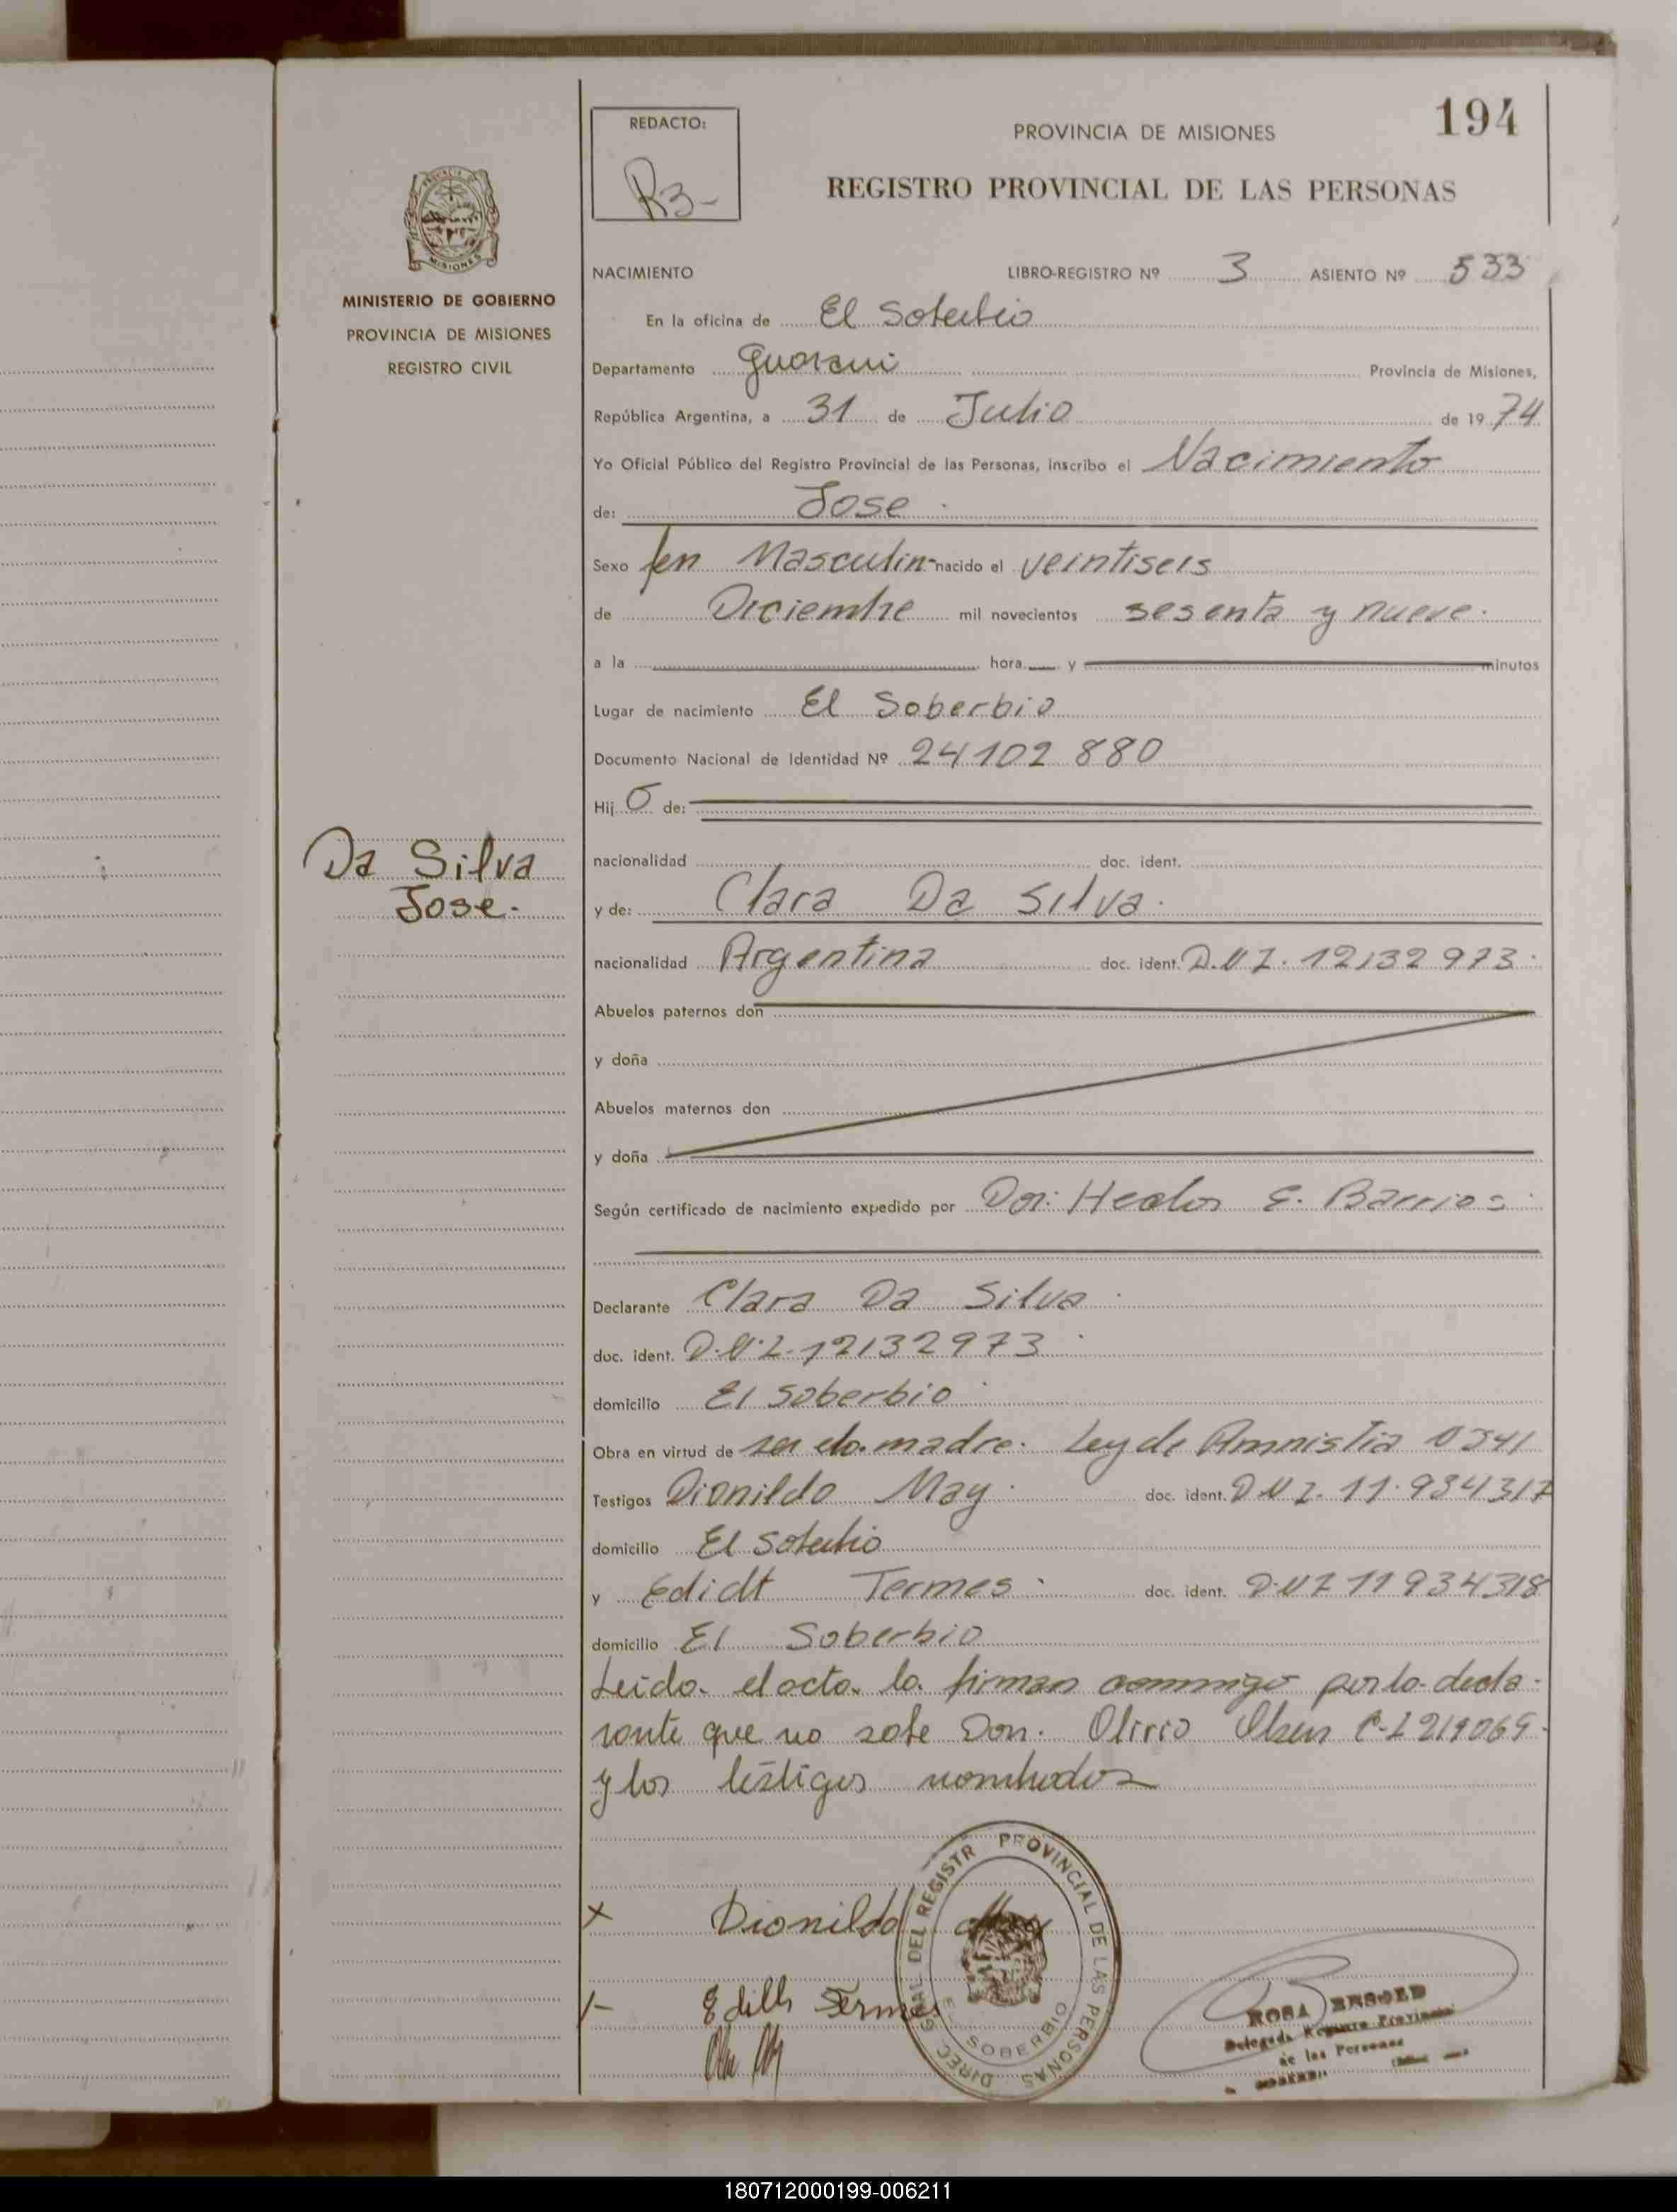 194
REDACTO:
PROVINCIA DE MISIONES
REGISTRO PROVINCIAL DE LAS PERSONAS
R3-
MISIONES
MINISTERIO DE GOBIERNO
PROVINCIA DE MISIONES
REGISTRO CIVIL
NACIMIENTO LIBRO-REGISTRO Nº 3 ASIENTO Nº 533
En la oficina de El Soberbio
Departamento Guarani Provincia de Misiones,
República Argentina, a 31 de Julio de 19 74
Yo Oficial Público del Registro Provincial de las Personas, inscribo el Nacimiento
de: Jose
Sexo fen Masculin nacido el veintiseis
de Diciembre mil novecientos sesenta y nueve.
a la hora y minutos
Lugar de nacimiento El Soberbio
Documento Nacional de Identidad Nº 24102 880
Hij o de:
nacionalidad doc. ident.
Da Silva
Jose.
y de: Clara Da Silva.
nacionalidad Argentina doc. ident. D.N I. 12132 973.
Abuelos paternos don
y doña
Abuelos maternos don
y doña
Según certificado de nacimiento expedido por Dor: Hector E. Barrios
Declarante Clara Da Silva
doc. ident. D.N.I. 12132973
domicilio El Soberbio
Obra en virtud de ser la madre. Ley de Amnistia
Testigos Dionildo May. doc. ident. D N I. 11.934317
domicilio El Soberbio
y Edidt Termes doc. ident. D.N I 11934318
domicilio El Soberbio
Leida el acta la firman conmigo por la decla-
rante que no sabe Don. Olirio Olsen C-I 219069.
y los testigos nombrados
x Dionildo May
Edith Termes
DIREC GRAL DEL REGISTR PROVINCIAL DE LAS PERSONAS
SOBERBIO
ROSA
Delegada Registro Provincial
de las Personas
180712000199-006211